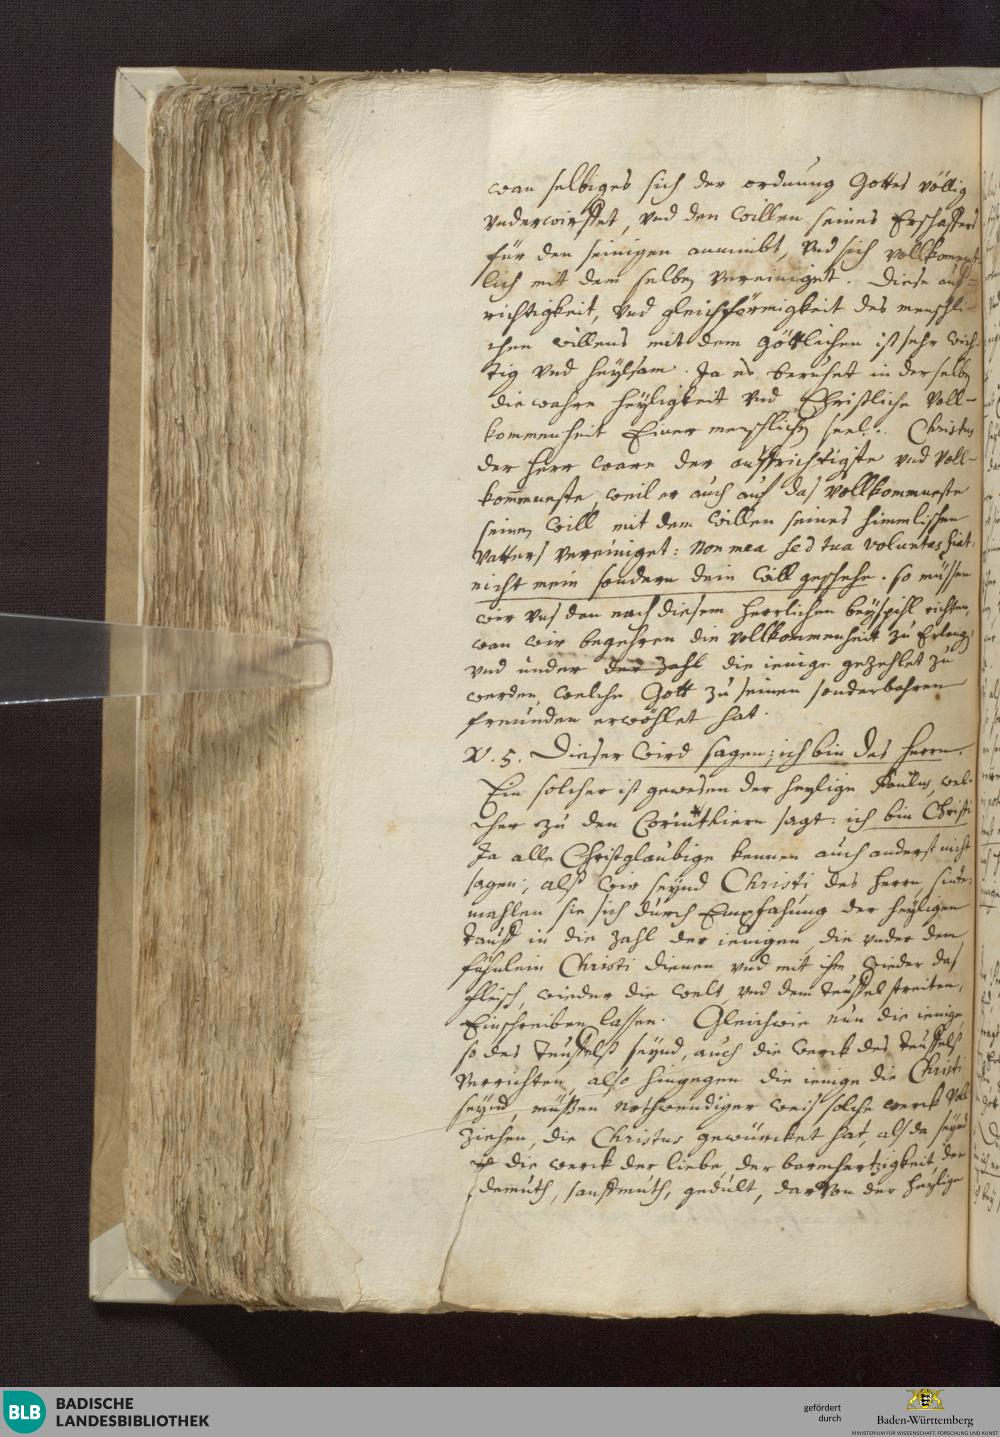 wan selbiges sich der ordnung Gottes völlig
vnderwirffet, vnd den willen seines Erschaffers
für den seinigen annimbt, vnd sich vollkoment-
lich mit dem selben vereiniget. Diese auf-
richtigkeit, vnd gleichförmigkeit des menschli-
chen willens mit dem göttlichen ist sehr wich-
tig vnd heylsam. Ja es beruhet in der selben
die wahre heyligkeit vnd Christliche voll-
kommenheit Einer menschlichen seel. Christus
der herr ware der auffrichtigste vnd voll-
kommneste, weil er auch auf das vollkommneste
seinen will mit dem willen seines himmlischen
Vatters vereiniget: Non mea sed tua voluntas fiat.
nicht mein sondern dein will geschehe. so müssen
wir vns dan nach diesem herrlichen beyspihl richten,
wan wir begehren die vollkommenheit zu Erlangen
vnd under der zahl die ienige gezehlet zu
werden, welche Gott zu seinen sonderbahren
freunden erwöhlet hat.
V. 5. Dieser wird sagen; ich bin des herrn.
Ein solcher ist gewesen der heylige Paulus, wel-
cher zu den Corinthiern sagt: ich bin Christi
Ja alle Christglaubige kennen auch anderst nicht
sagen, alß wir seynd Christi des herrn, sinte-
mahlen sie sich durch Empfahung der heyligen
tauff in die zahl der ienigen, die vnder dem
fähnlein Christi dienen vnd mit ihm wieder das
fleisch, wieder die welt, vnd dem teuffel streiten,
Einschreiben lassen. Gleichwie nun die ienige,
so des teuffelß seynd, auch die werck des teuffelß
verrichten, also hingegen die ienige die Christi
seynd, müßen nothwendiger weis solche werck voll-
ziehen, die Christus gewürcket hat, als da seynd
die werck der liebe, der barmhertzigkeit, der
demuth, sanftmuth, gedult, darvon der heylige
BLB BADISCHE
LANDESBIBLIOTHEK
gefördert
durch
Baden-Württemberg
MINISTERIUM FÜR WISSENSCHAFT, FORSCHUNG UND KUNST